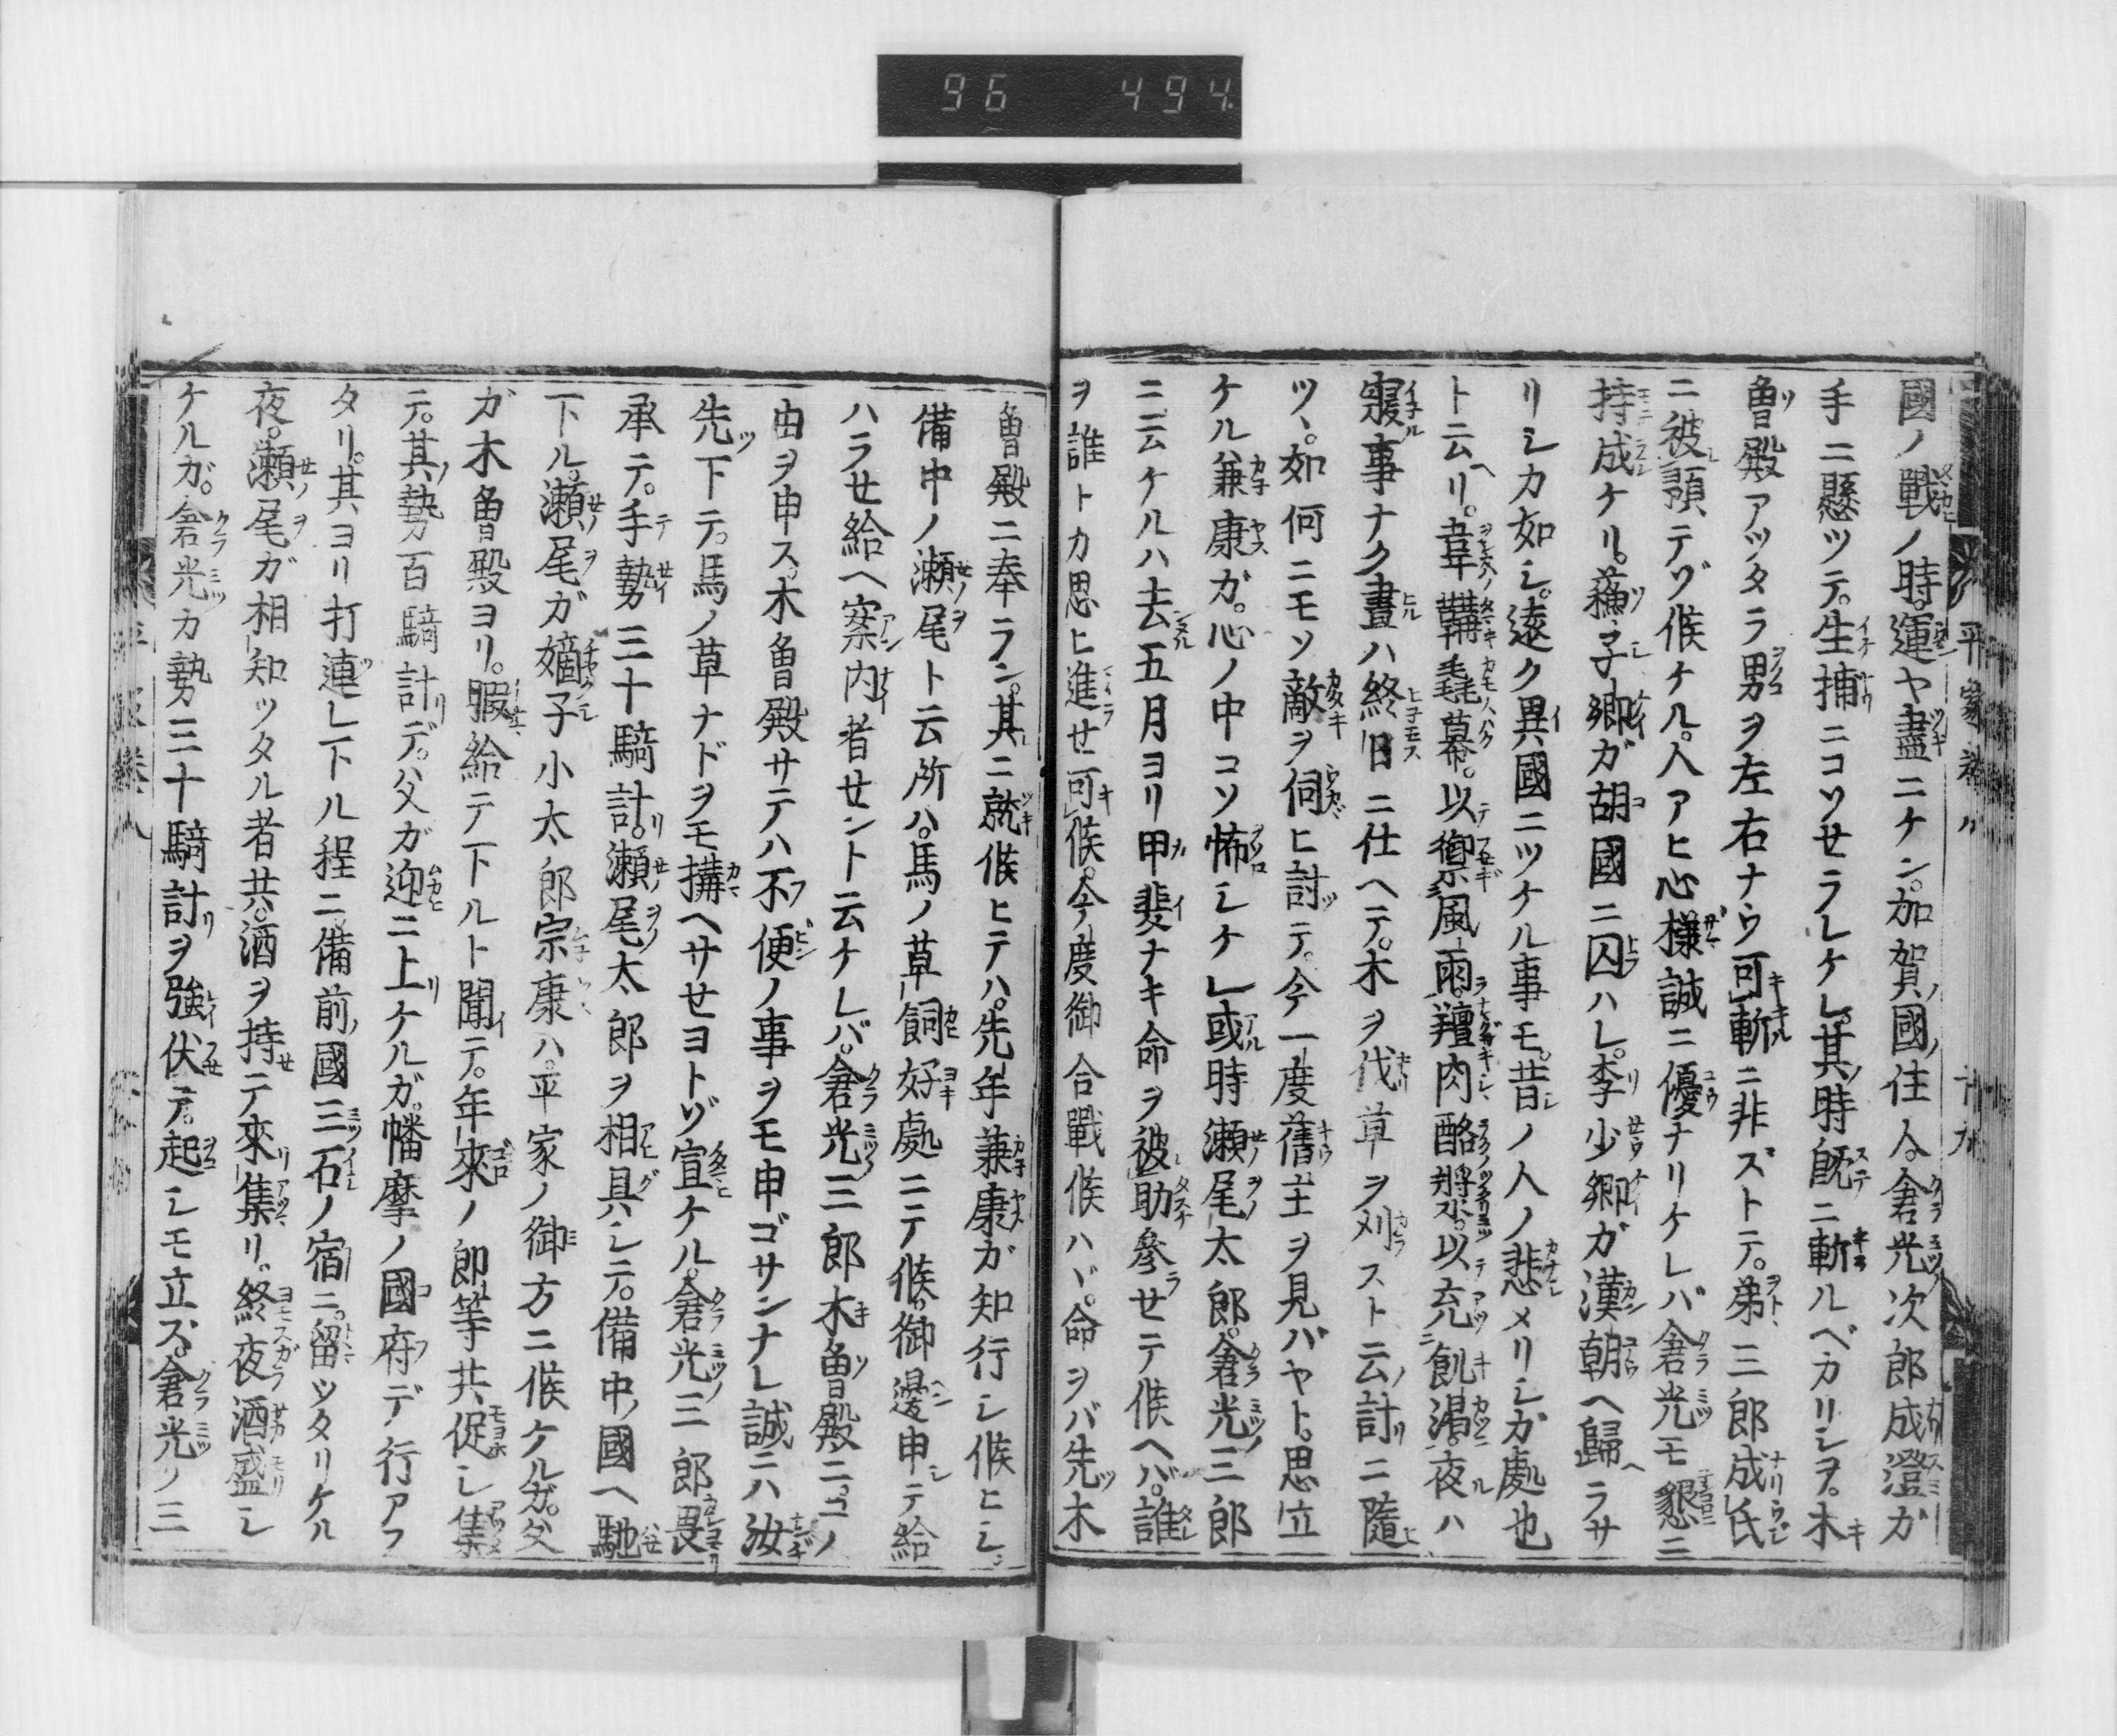 96 494
國ノ戰ノ時。運ヤ盡ニケン。加賀ノ國ノ住人倉光次郎成澄ガ
手ニ懸ツテ。生捕ニコソセラレケレ。其ノ時既ニ斬ルベカリシヲ。木
曾殿アツタラ男ヲ左右ナウ可斬ニ非ズトテ。弟三郎成氏
ニ被預テゾ候ケル。人アヒ心樣誠ニ優ナリケレバ倉光モ懇ニ
持成ケリ。蘇子卿ガ胡國ニ囚ハレ。李少卿ガ漢朝ヘ歸ラサ
リシカ如シ。遠ク異國ニツケル事モ。昔ノ人ノ悲メリシガ處也
ト云リ。韋韝毳幕。以禦風雨羶肉酪漿。以充飢渇。夜ハ
寢事ナク晝ハ終日ニ仕ヘテ。木ヲ伐草ヲ刈スト云計ニ隨
ツヽ。如何ニモソ敵ヲ伺ヒ討テ。今一度舊主ヲ見バヤト。思立
ケル兼康ガ。心ノ中コソ怖シケレ或時瀬尾太郎。倉光三郎
ニ云ケルハ去五月ヨリ甲斐ナキ命ヲ被助參せテ候ヘバ。誰
ヲ誰トカ思ヒ進せ可候。今度御合戰候ハヾ。命ヲバ先木
曾殿ニ奉ラン。其ニ就候ヒテハ。先年兼康ガ知行シ候ヒシ。
備中ノ瀬尾ト云所ハ。馬ノ草飼好處ニテ候。御邊申テ給
ハラせ給ヘ案内者せント云ケレバ。倉光三郎木曾殿ニコノ
由ヲ申ス。木曾殿サテハ不便ノ事ヲモ申ゴサンナレ誠ニハ汝
先下テ。馬ノ草ナドヲモ搆ヘサせヨトゾ宣ケル。倉光三郎畏
承テ。手勢三十騎計。瀬尾太郎ヲ相具シテ。備中ノ國ヘ馳
下ル。瀬尾ガ嫡子小太郎宗康ハ。平家ノ御方ニ候ケルガ。父
ガ木曾殿ヨリ。暇給テ下ルト聞テ。年來ノ郎等共促シ集
テ。其勢百騎計デ。父ガ迎ニ上ケルガ。幡摩ノ國府デ行アフ
タリ。其ヨリ打連レ下ル程ニ。備前ノ國三石ノ宿ニ。留ツタリケル
夜。瀬尾ガ相知ツタル者共。酒ヲ持テ來集リ。終夜酒盛シ
ケルガ。倉光カ勢三十騎計ヲ強伏テ。起シモ立ズ。倉光ノ三